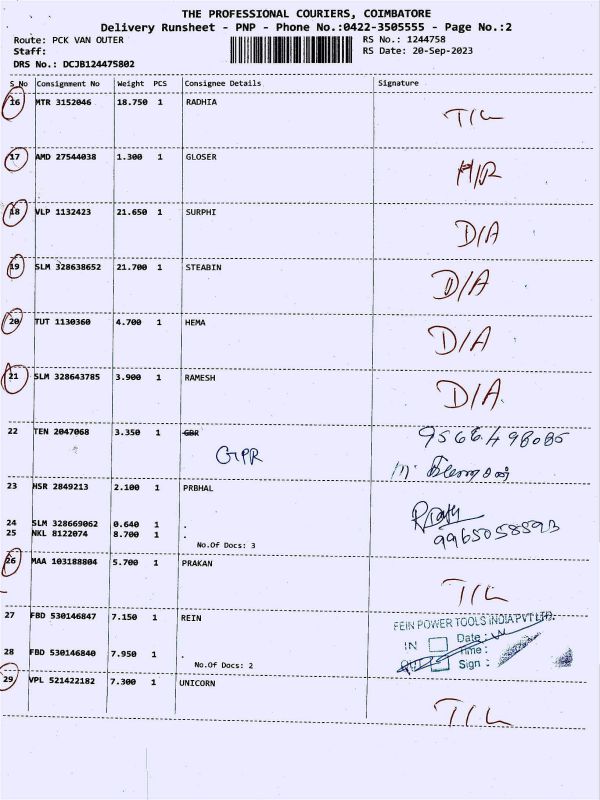 THE PROFESSIONAL COURIERS, COIMBATORE
Delivery Runsheet - PNP - Phone No.:0422-3505555 - Page No.:2
Route: PCK VAN OUTER RS No.: 1244758
Staff: RS Date: 20-Sep-2023
DRS No.: DCJB124475802
S_No Consignment No Weight PCS Consignee Details Signature
16 MTR 3152046 18.750 1 RADHIA T/L
17 AMD 27544038 1.300 1 GLOSER H/R
18 VLP 1132423 21.650 1 SURPHI D/A
19 SLM 328638652 21.700 1 STEABIN D/A
20 TUT 1130360 4.700 1 HEMA D/A
21 SLM 328643785 3.900 1 RAMESH D/A.
22 TEN 2047068 3.350 1 GBR
GPR
23 HSR 2849213 2.100 1 PRBHAL
24 SLM 328669062 0.640 1 . 9965058593
25 NKL 8122074 8.700 1 .
No.Of Docs: 3
26 MAA 103188804 5.700 1 PRAKAN T/L
27 FBD 530146847 7.150 1 REIN
FEIN POWER TOOLS INDIA PVT LTD.
IN Date:
OUT Time:
Sign:
28 FBD 530146840 7.950 1 .
No.Of Docs: 2
29 VPL 521422182 7.300 1 UNICORN T/L